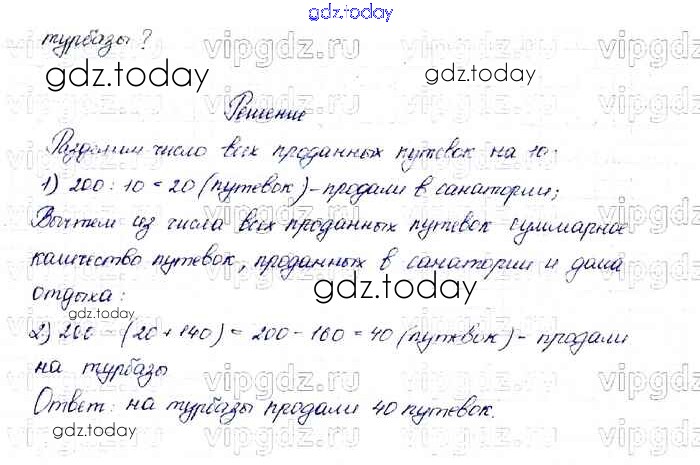 gdz.today
турбазы?
Решение
Разделим число всех проданных путевок на 10:
1) 200 : 10 = 20 (путевок) - продали в санатории;
Вычтем из числа всех проданных путевок суммарное
количество путевок, проданных в санатории и дома
отдыха:
2) 200 - (20 + 140) = 200 - 160 = 40 (путевок) - продали
на турбазы
Ответ: на турбазы продали 40 путевок.